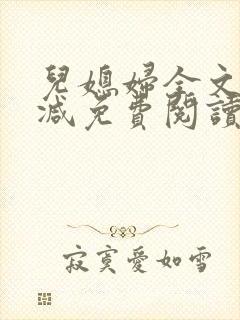 兒媳婦全文
減免費閱讀
寂寞愛如雪